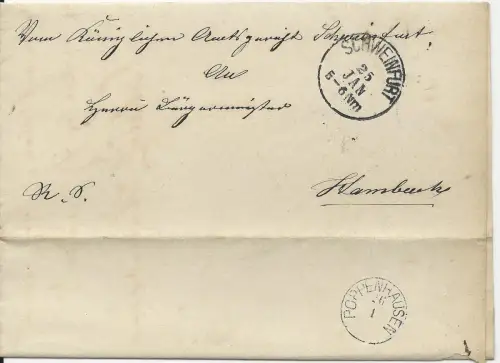 Vom Königlichen Amtsgericht Schweinfurt
An
Herrn Bürgermeister
R. S.
Hambach
SCHWEINFURT
25
JAN
5-6Nm
POPPENHAUSEN
26
1